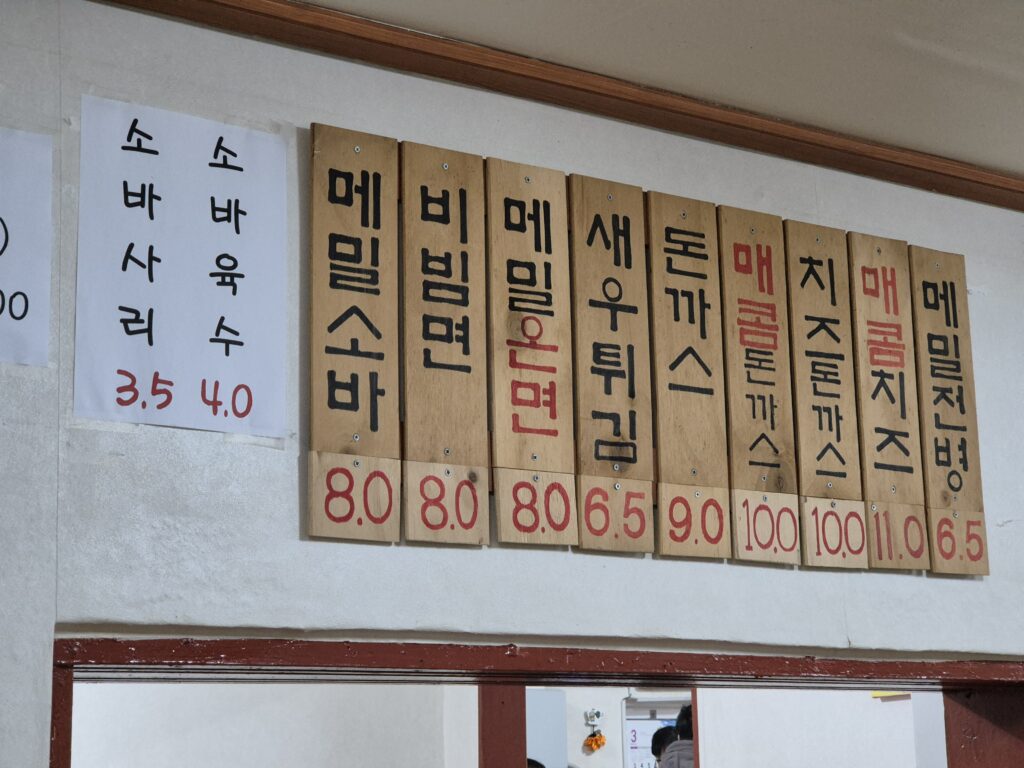 )
00
소바사리
3.5
소바육수
4.0
메밀소바
8.0
비빔면
8.0
메밀온면
8.0
새우튀김
6.5
돈까스
9.0
매콤돈까스
10.0
치즈돈까스
10.0
매콤치즈
11.0
메밀전병
6.5
3